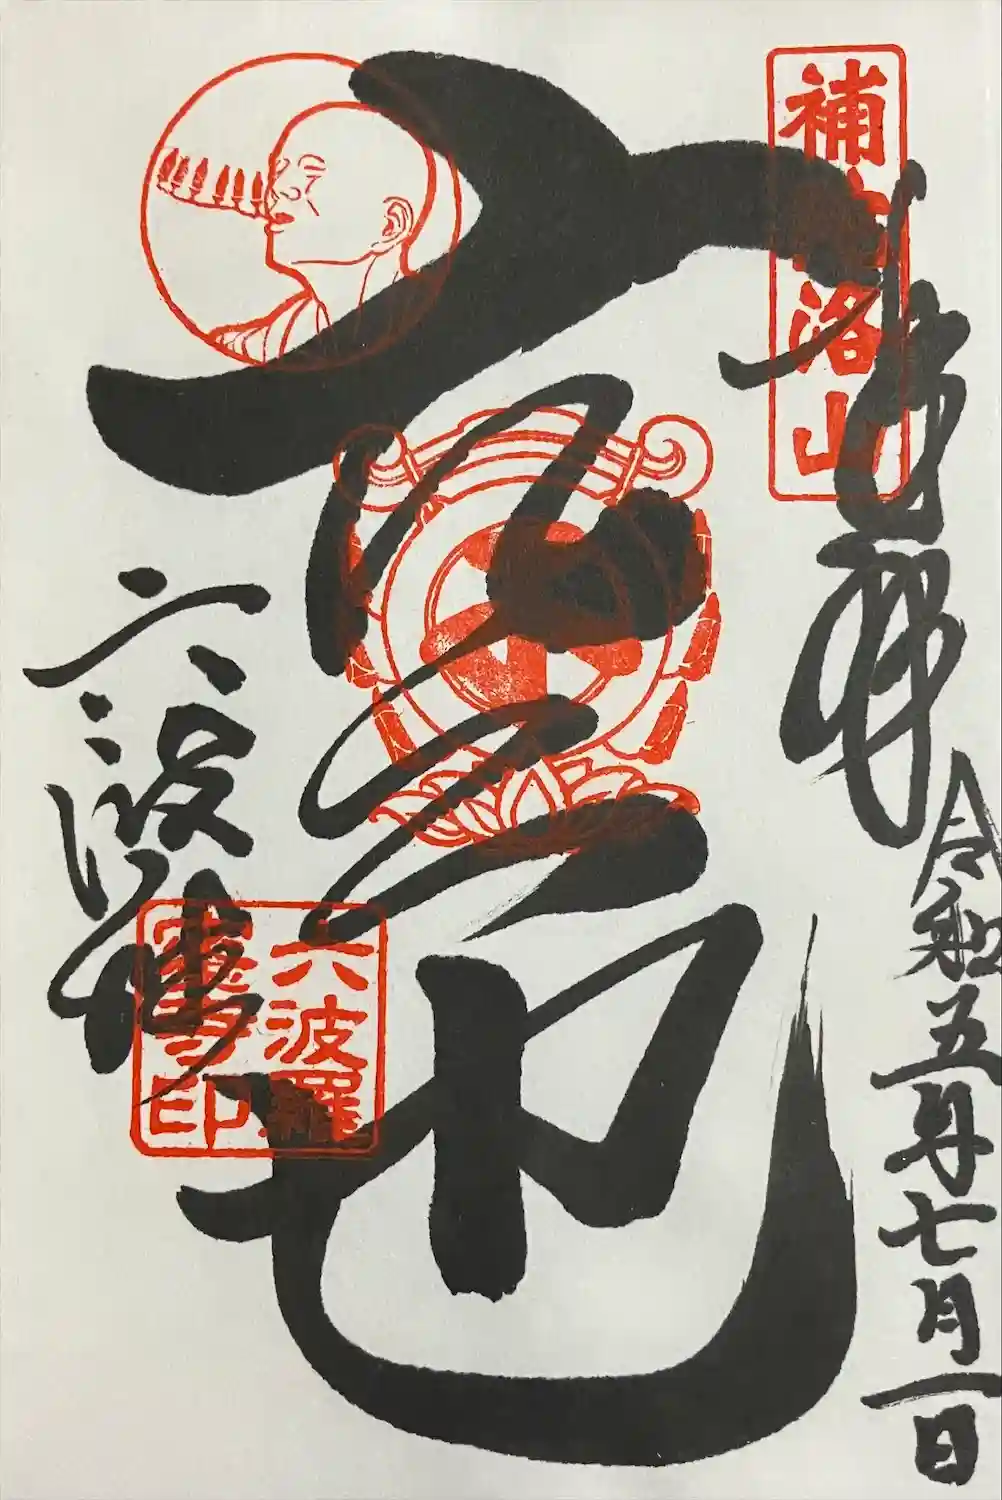 奉拝
令和五年七月一日
補陀洛山
空也
六波羅蜜寺印
六波